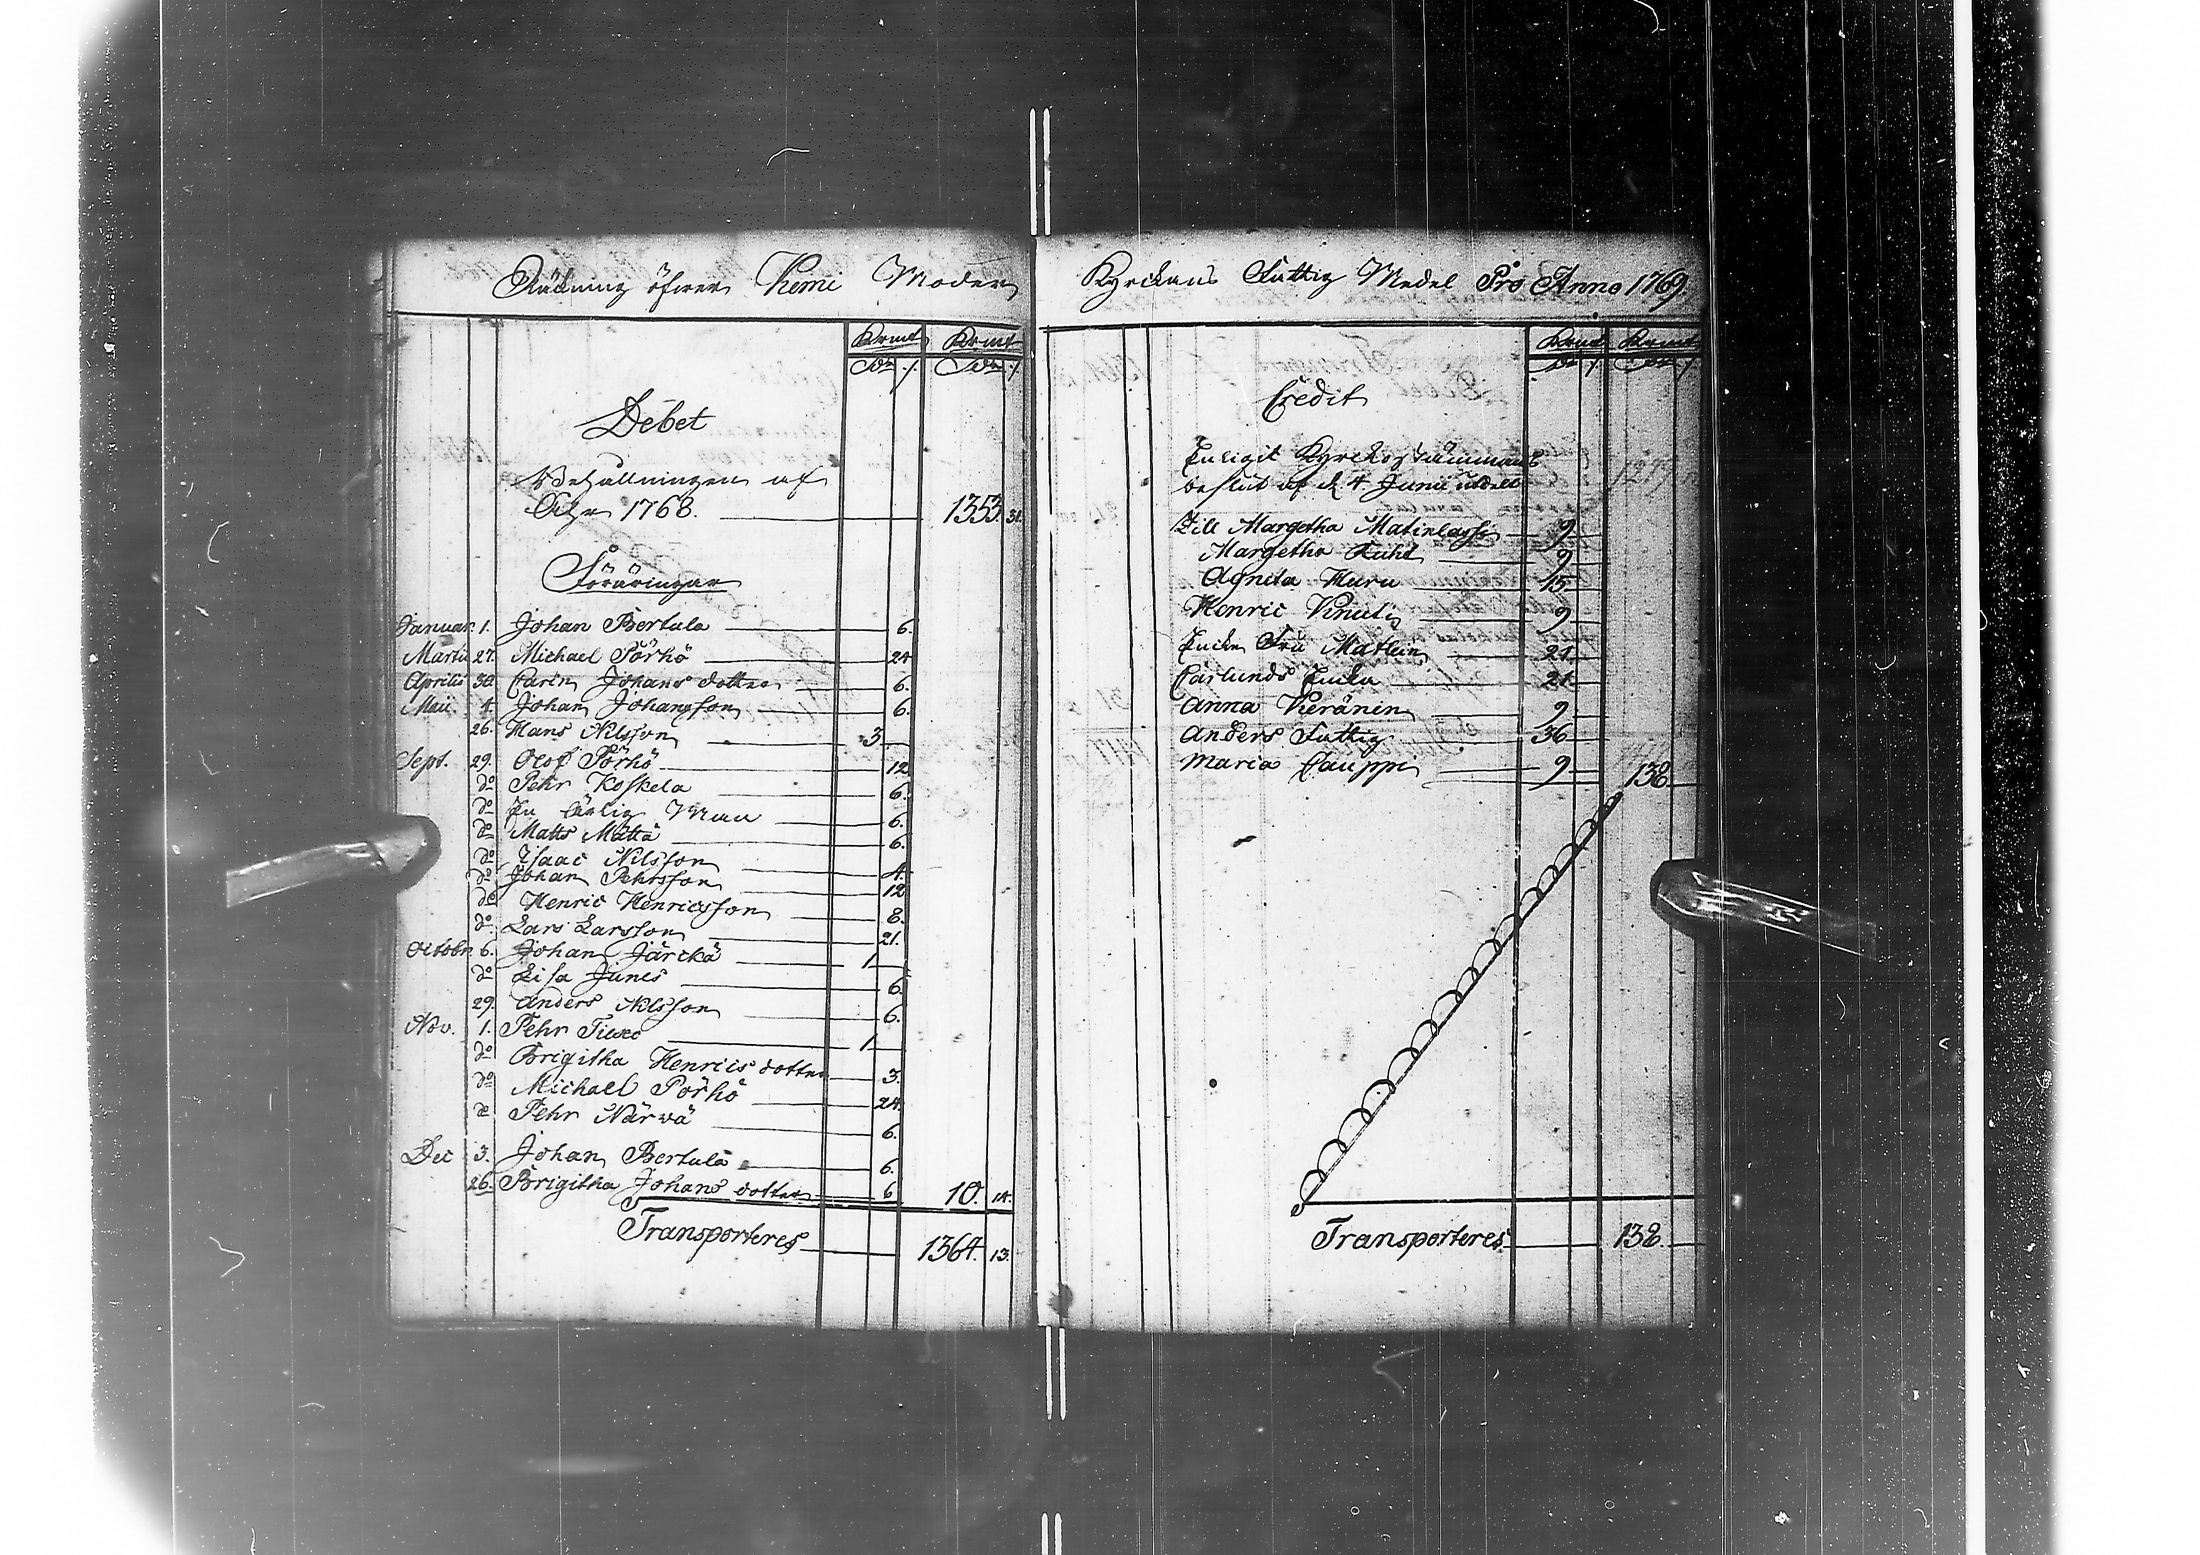 Räkning öfwer Kemi Moder
Krmt Krmt
Dr /. Dr /.
Debet
Behållningen af
Åhr 1768. 1353. 31.
Föräringar
Januar. 1. Johan Bertula 6.
Martii 27. Michael Pörhö 24
Aprilis 30. Carin Johans dotter 6.
Maii 4. Johan Johansson 6.
26. Hans Nilsson 3
Sept. 29. Olof Pörhö 12
do Pehr Koskela 6.
do En ärlig Man 6.
do Matts Mattä 6.
do Isaac Nilsson 4.
do Johan Pehrsson 12
do Henric Henricsson 8.
do Lars Larsson 21.
Octobr. 6. Johan Järckä 1
do Lisa Junes 6.
29. Anders Nilsson 6.
Nov. 1. Pehr 1
do Brigitha Henrics dotter 3.
do Michael Pörhö 24.
do Pehr Närwä 6.
Dec 3. Johan Bertula 6.
26. Brigitha Johans dotter 6 10. 14.
Transporteres 1364. 13.
Kyrckans Fattig Medel Pro Anno 1769.
Krmt Krmt
Dr /. Dr /.
Credit
Enligit Kyrckostämmans
beslut af d. 4 Junii utdelt
Till Margetha Matinlassi 9
Margetha Kuhl 9
Agneta Muru 15
Henric Knuti 9
Enke Fru Matlein 21
Carlunds Enka 21
Anna Keränen 9
Anders Fattig 36
Maria Cauppi 9 138
Transporteres 138.